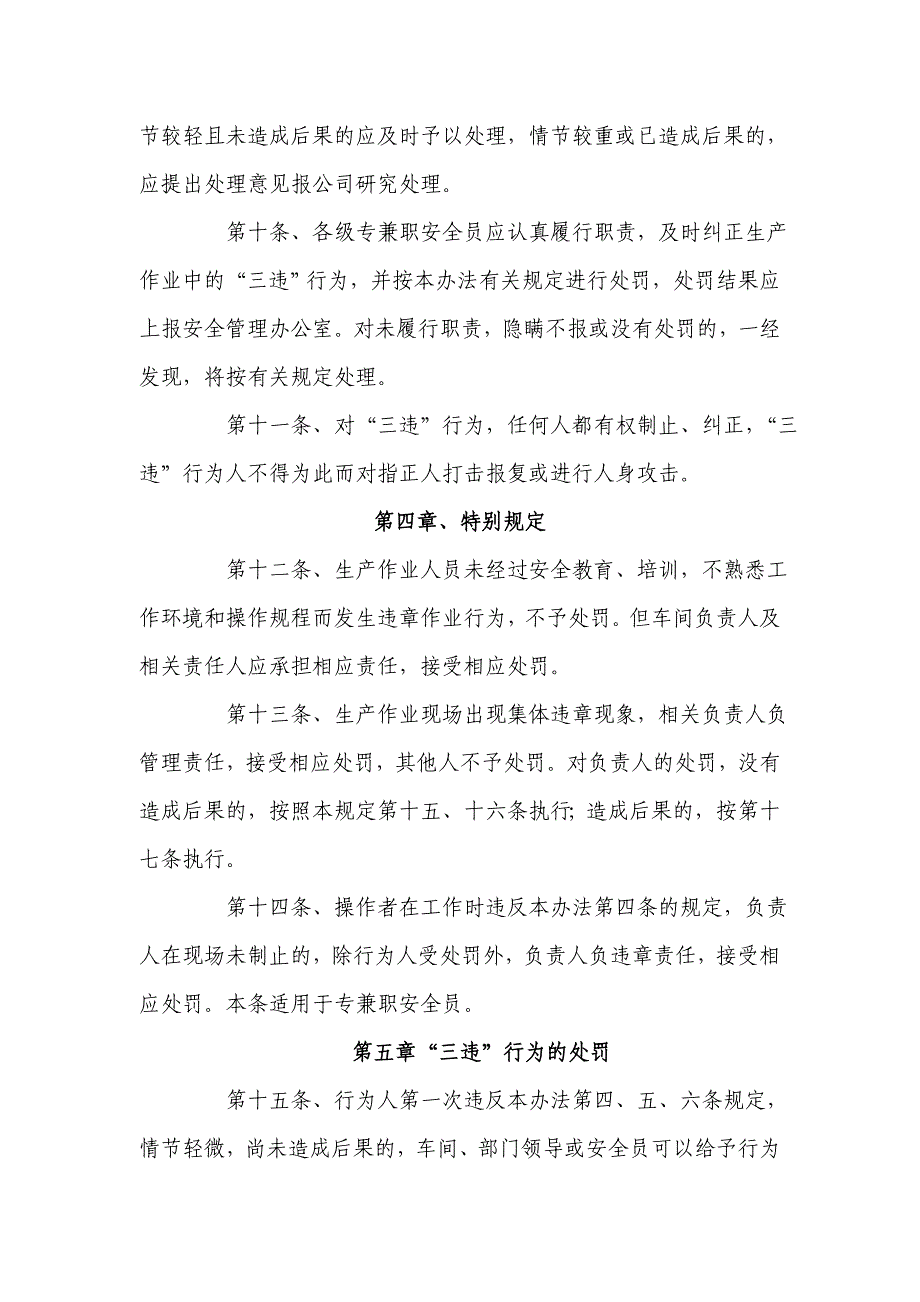 节较轻且未造成后果的应及时予以处理，情节较重或已造成后果的，
应提出处理意见报公司研究处理。
第十条、各级专兼职安全员应认真履行职责，及时纠正生产
作业中的“三违”行为，并按本办法有关规定进行处罚，处罚结果应
上报安全管理办公室。对未履行职责，隐瞒不报或没有处罚的，一经
发现，将按有关规定处理。
第十一条、对“三违”行为，任何人都有权制止、纠正，“三
违”行为人不得为此而对指正人打击报复或进行人身攻击。
第四章、特别规定
第十二条、生产作业人员未经过安全教育、培训，不熟悉工
作环境和操作规程而发生违章作业行为，不予处罚。但车间负责人及
相关责任人应承担相应责任，接受相应处罚。
第十三条、生产作业现场出现集体违章现象，相关负责人负
管理责任，接受相应处罚，其他人不予处罚。对负责人的处罚，没有
造成后果的，按照本规定第十五、十六条执行；造成后果的，按第十
七条执行。
第十四条、操作者在工作时违反本办法第四条的规定，负责
人在现场未制止的，除行为人受处罚外，负责人负违章责任，接受相
应处罚。本条适用于专兼职安全员。
第五章“三违”行为的处罚
第十五条、行为人第一次违反本办法第四、五、六条规定，
情节轻微，尚未造成后果的，车间、部门领导或安全员可以给予行为